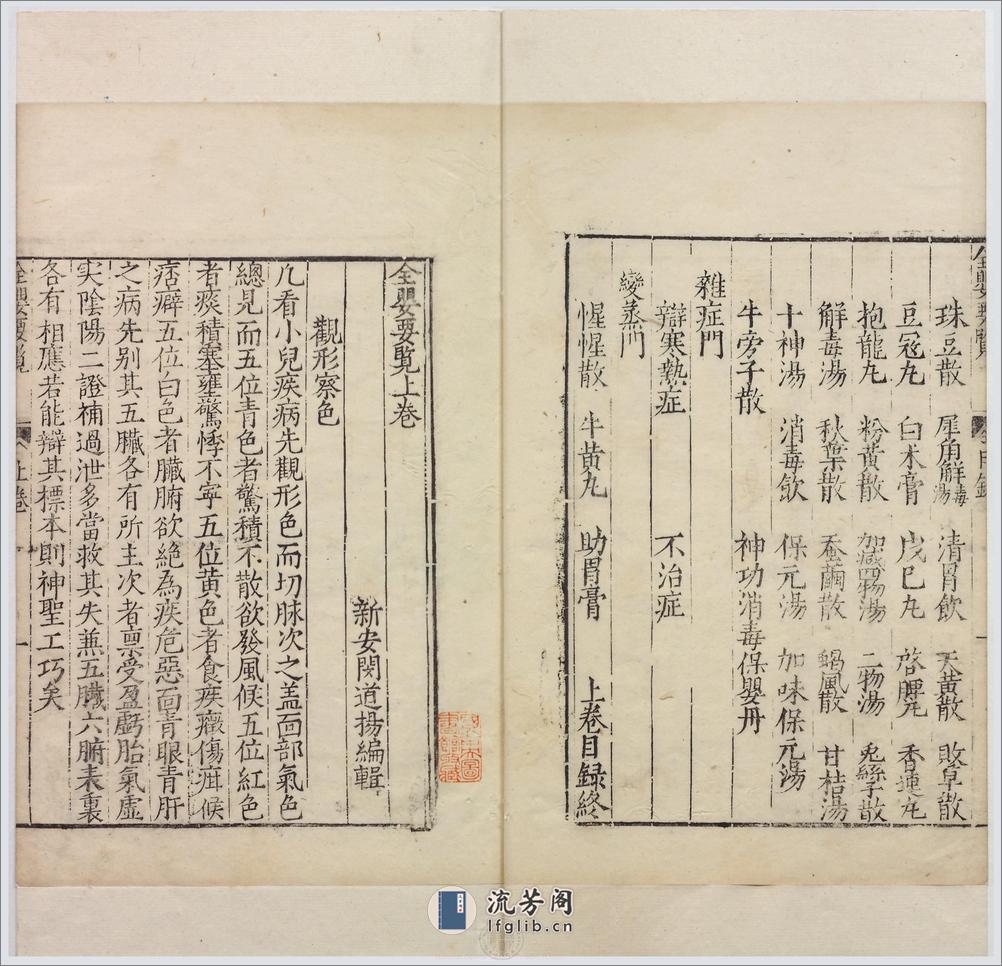 珠豆散 犀角解毒湯 清胃飲 天黄散 敗草散
豆冦丸 白术膏 戊巳丸 啓脾丸 香連丸
抱龍丸 粉黄散 加减四物湯 二物湯 兎絲子散
解毒湯 秋葉散 蚕繭散 蝎風散 甘桔湯
十神湯 消毒飲 保元湯 加味保元湯
牛旁子散 神功消毒保嬰丹
雜症門
辯寒熱症 不治症
變蒸門
惺惺散 牛黄丸 助胃膏 上卷目録終
全嬰要覧上卷
新安閔道揚編輯
觀形察色
凢看小兒疾病先觀形色而切脉次之盖面部氣色
總見而五位青色者驚積不散欲發風候五位紅色
者痰積壅塞驚悸不寧五位黄色者食疾癥傷疳候
痞癖五位白色者臟腑欲絶為疾危惡面青眼青肝
之病先别其五臟各有所主次者禀受盈虧胎氣虚
实陰陽二證補過泄多當救其失兼五臟六腑表裏
各有相應若能辯其標本則神聖工巧矣
全嬰要覧 上卷 一
流芳阁
lfglib.cn